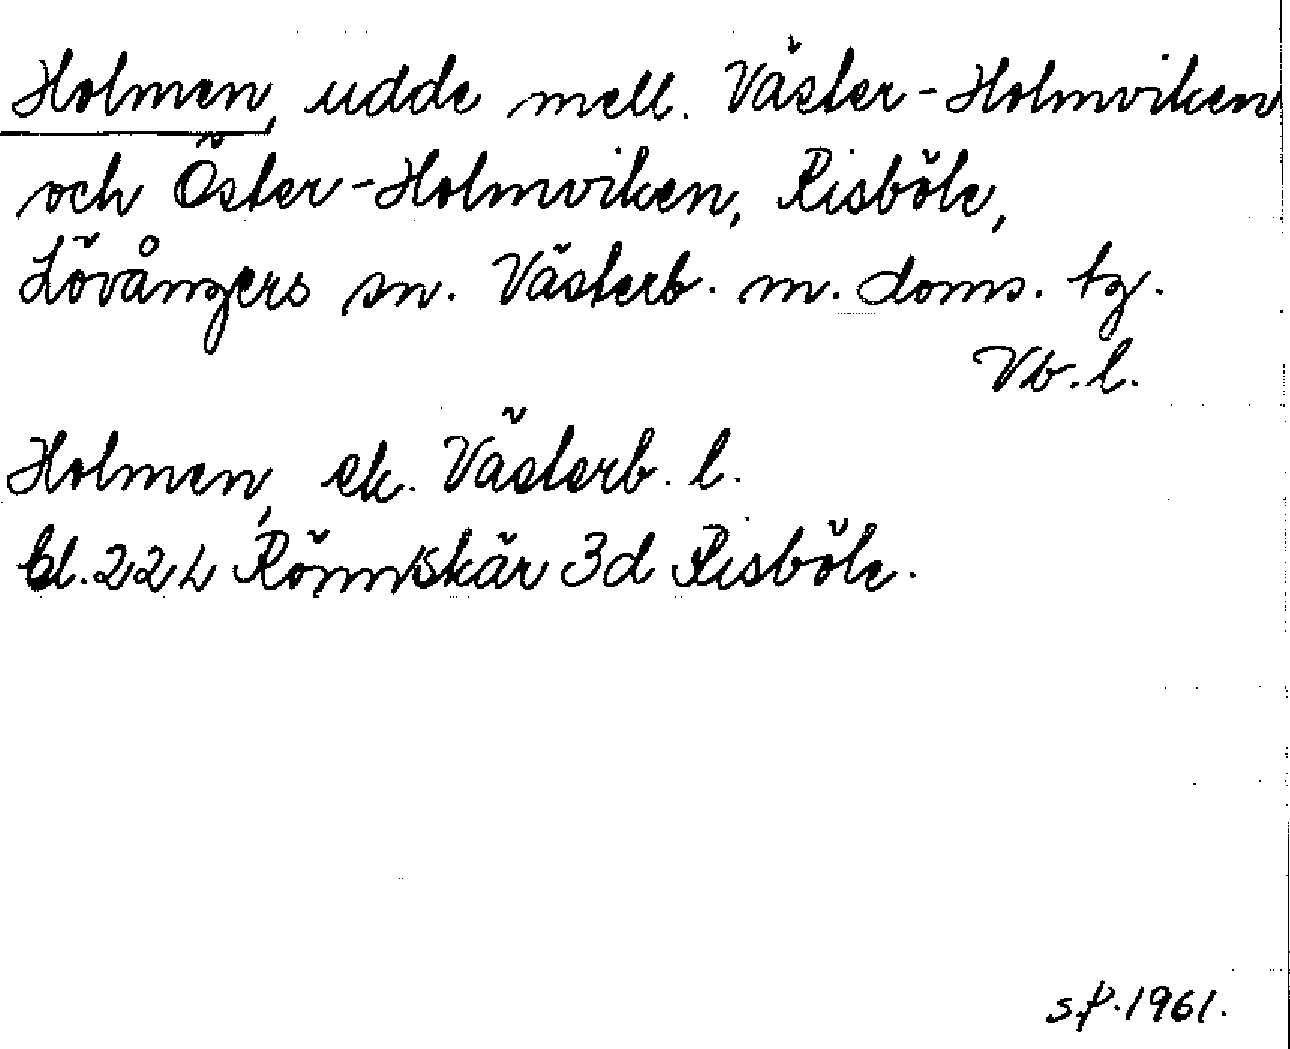 Holmen, udde mell. Väster-Holmviken
och Öster-Holmviken, Risböle,
Lövångers sn. Västerb. m. doms. tg.
Vb. l.
Holmen, ek. Västerb. l.
bl. 22 L Rönnskär 3d Risböle.
s.f. 1961.